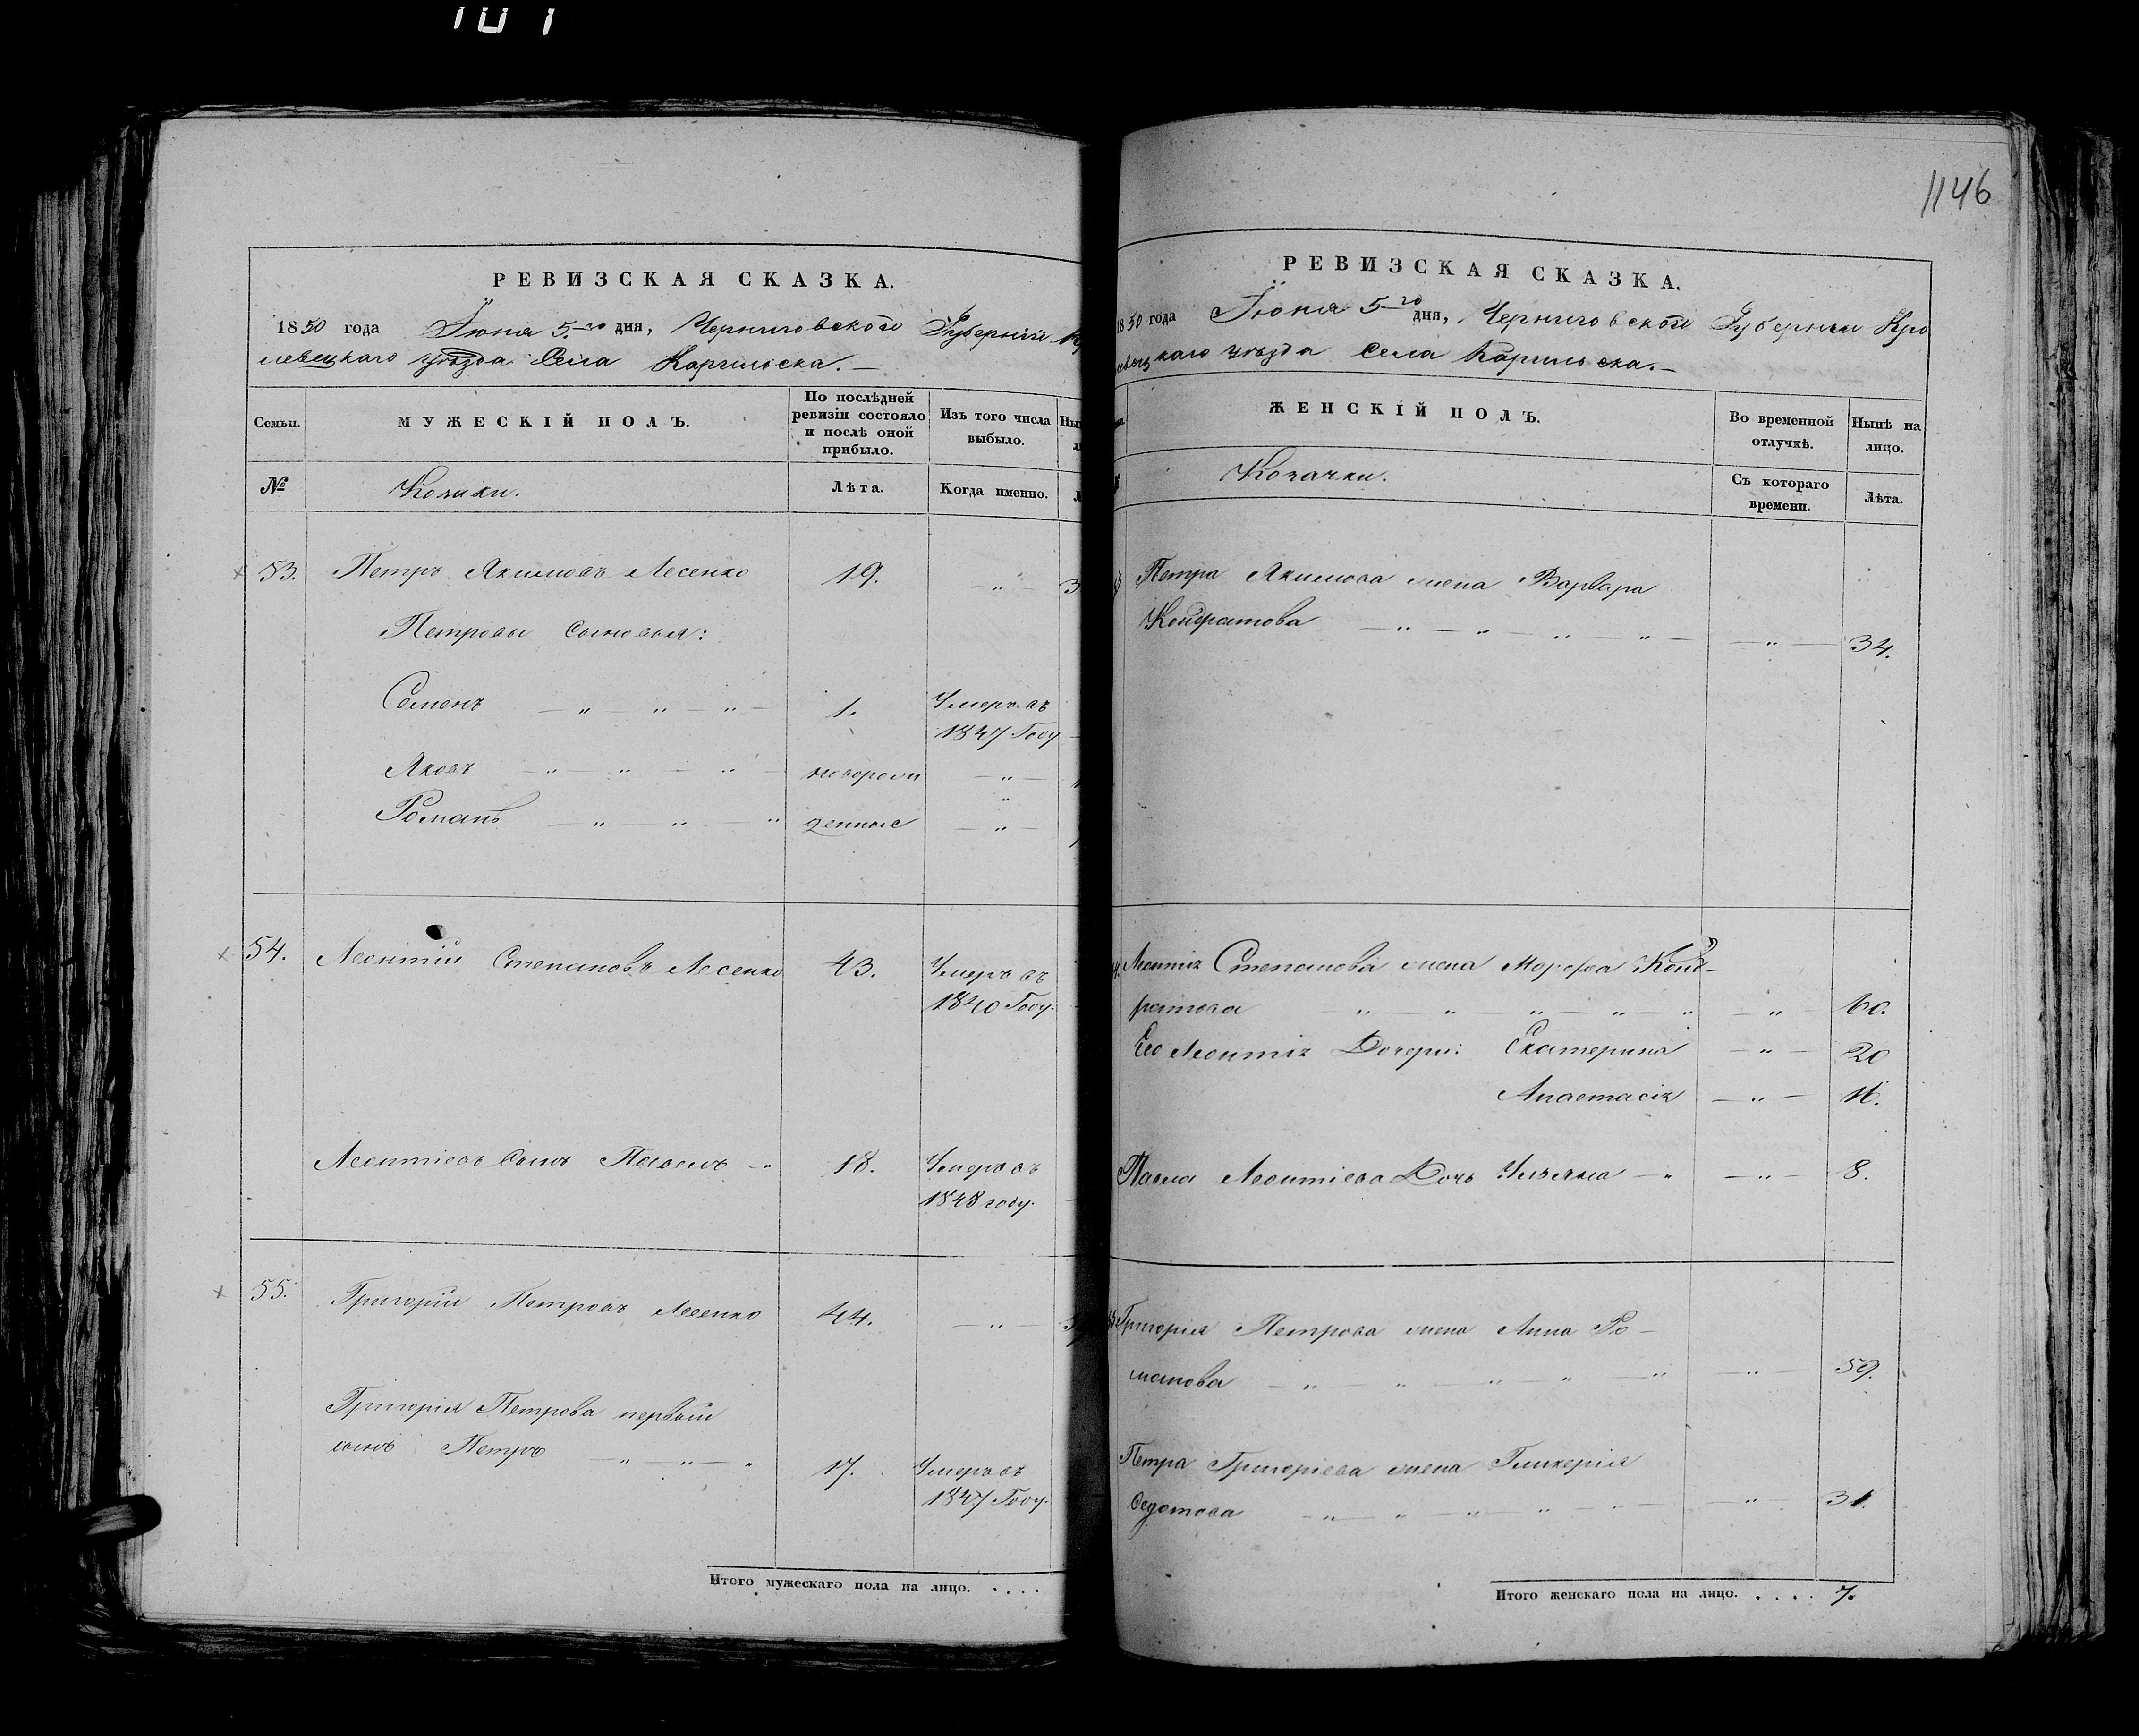 1146
РЕВИЗСКАЯ СКАЗКА.
1850 года Іюня 5.го дня, Черниговской Губерніи
левецкаго уѣзда Села Карильска.
Семьи.
МУЖЕСКІЙ ПОЛЪ.
По послѣдней
ревизіи состояло
и послѣ оной
прибыло.
Изъ того числа
выбыло.
№
Козаки.
Лѣта.
Когда именно.
53. Петръ Якимовъ Лесенко 19. — " —
Петровы сыновья:
Семенъ — " — " — " — 1. Умеръ въ
1847 Году
Яковъ — " — " — " — новорож — " —
"
Романъ — " — " — " денные — " —
54. Леонтій Степановъ Лесенко 43. Умеръ въ
1840 Году.
Леонтіевъ Сынъ Павелъ — " 18. Умеръ въ
1848 году.
55. Григорій Петровъ Лесенко 44. — " —
Григорія Петрова первый
сынъ Петръ — " — " — " 17. Умеръ въ
1847 Году.
Итого мужескаго пола на лицо. . . . .
РЕВИЗСКАЯ СКАЗКА.
1850 года Іюня 5го дня, Черниговской Губерніи Кро
левецкаго уѣзда Села Карильска.
ЖЕНСКІЙ ПОЛЪ.
Во временной
отлучкѣ.
Нынѣ на
лицо.
Козачки.
Съ котораго
времени.
Лѣта.
Петра Якимова жена Варвара
Кондратова — " — " — " — " — — " — 34.
Леонтія Степанова жена Марфа Конд-
ратова — " — " — " — " — " — " — 60.
Его Леонтія Дочери: Екатерина — " — 20
Анастасія — " — 16.
Павла Леонтіева Дочь Ульяна — " — " — 8.
Григорія Петрова жена Анна Ро-
манова — " — " — " — " — " — " — 59.
Петра Григоріева жена Гликерія
Федотова — " — " — " — " — " — " — 31.
Итого женскаго пола на лицо. . . . . 7.